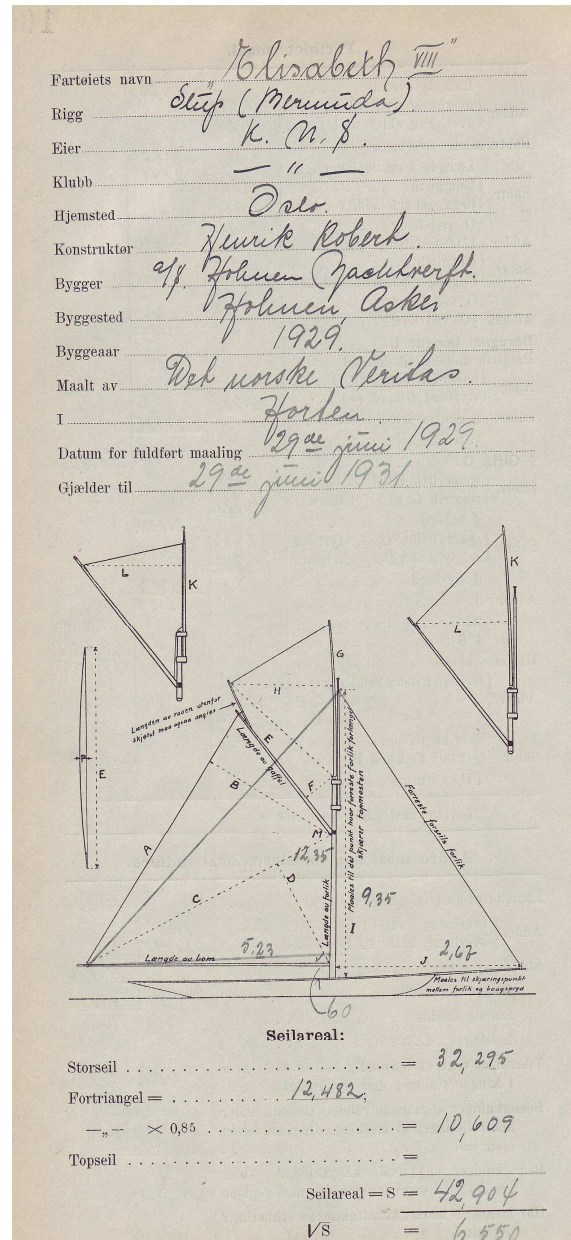 Fartøiets navn „Elisabeth VIII”
Rigg Slup (Bermuda)
Eier K. N. S.
Klubb — " —
Hjemsted Oslo.
Konstruktør Henrik Robert.
Bygger a/s. Holmen Yachtverft.
Byggested Holmen, Asker
Byggeaar 1929.
Maalt av Det norske Veritas.
I Horten
Datum for fuldført maaling 29de juni 1929
Gjælder til 29de juni 1931
L
K
K
L
G
H
Længden av raaen utenfor
skjøtet maa ogsaa angies
E
Længde av gaffel
F
P
E
B
A
M
12,35
C
D
Længde av forlik
Maales til det punkt hvor forreste forlik forlænget
skjærer topmasten
Forreste forseils forlik
9,35
I
5,23
Længde av bom
2,67
J
Maales til skjæringspunkt
mellem forlik og baugspryd
60
Seilareal:
Storseil = 32,295
Fortriangel = 12,482;
—„— × 0,85 = 10,609
Topseil =
Seilareal = S = 42,904
√S = 6,550